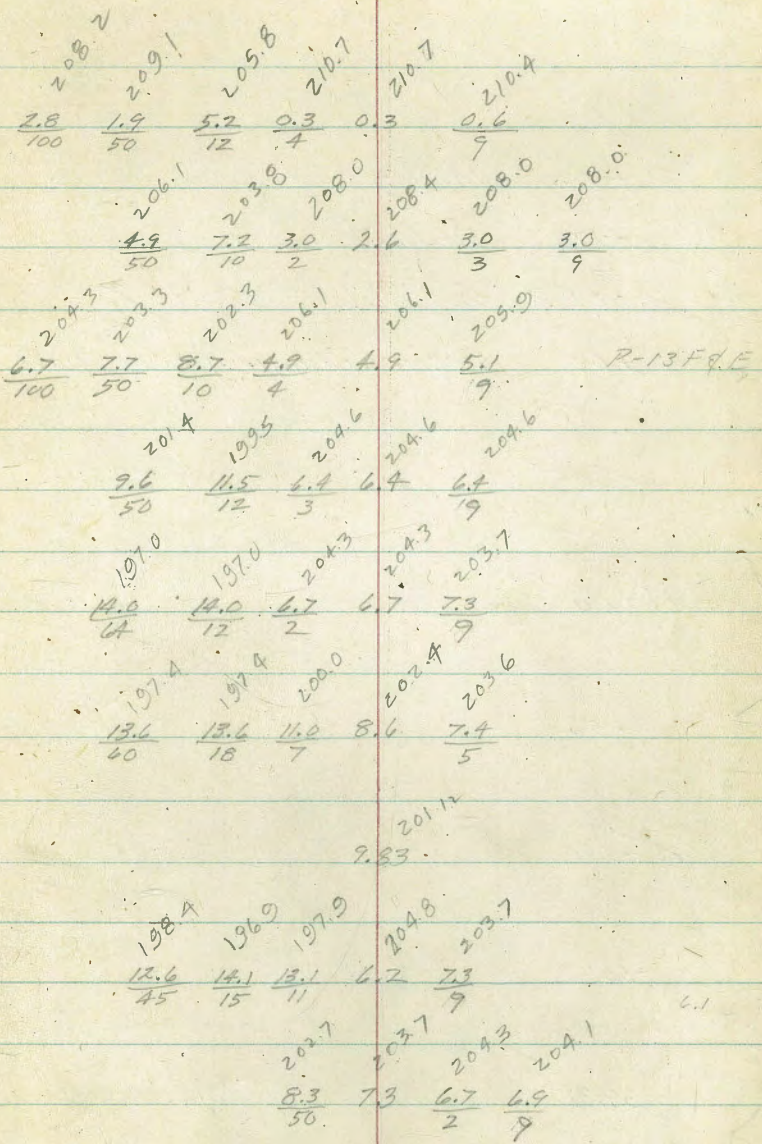 208.2 209.1 205.8 210.7 210.7 210.4
2.8/100 1.9/50 5.2/12 0.3/4 0.3 0.6/9
206.1 203.8 208.0 208.4 208.0 208.0
4.9/50 7.2/10 3.0/2 2.6 3.0/3 3.0/9
204.3 203.3 202.3 206.1 206.1 205.9
6.7/100 7.7/50 8.7/10 4.9/4 4.9 5.1/9 P-13 F&E
201.4 199.5 204.6 204.6 204.6
9.6/50 11.5/12 6.4/3 6.4 6.4/9
197.0 197.0 204.3 204.3 203.7
14.0/64 14.0/12 6.7/2 6.7 7.3/9
197.4 197.4 200.0 202.4 203.6
13.6/60 13.6/18 11.0/7 8.6 7.4/5
201.12
9.83
198.4 196.9 197.9 204.8 203.7
12.6/45 14.1/15 13.1/11 6.2 7.3/9 6.1
202.7 203.7 204.3 204.1
8.3/50 7.3 6.7/2 6.9/9